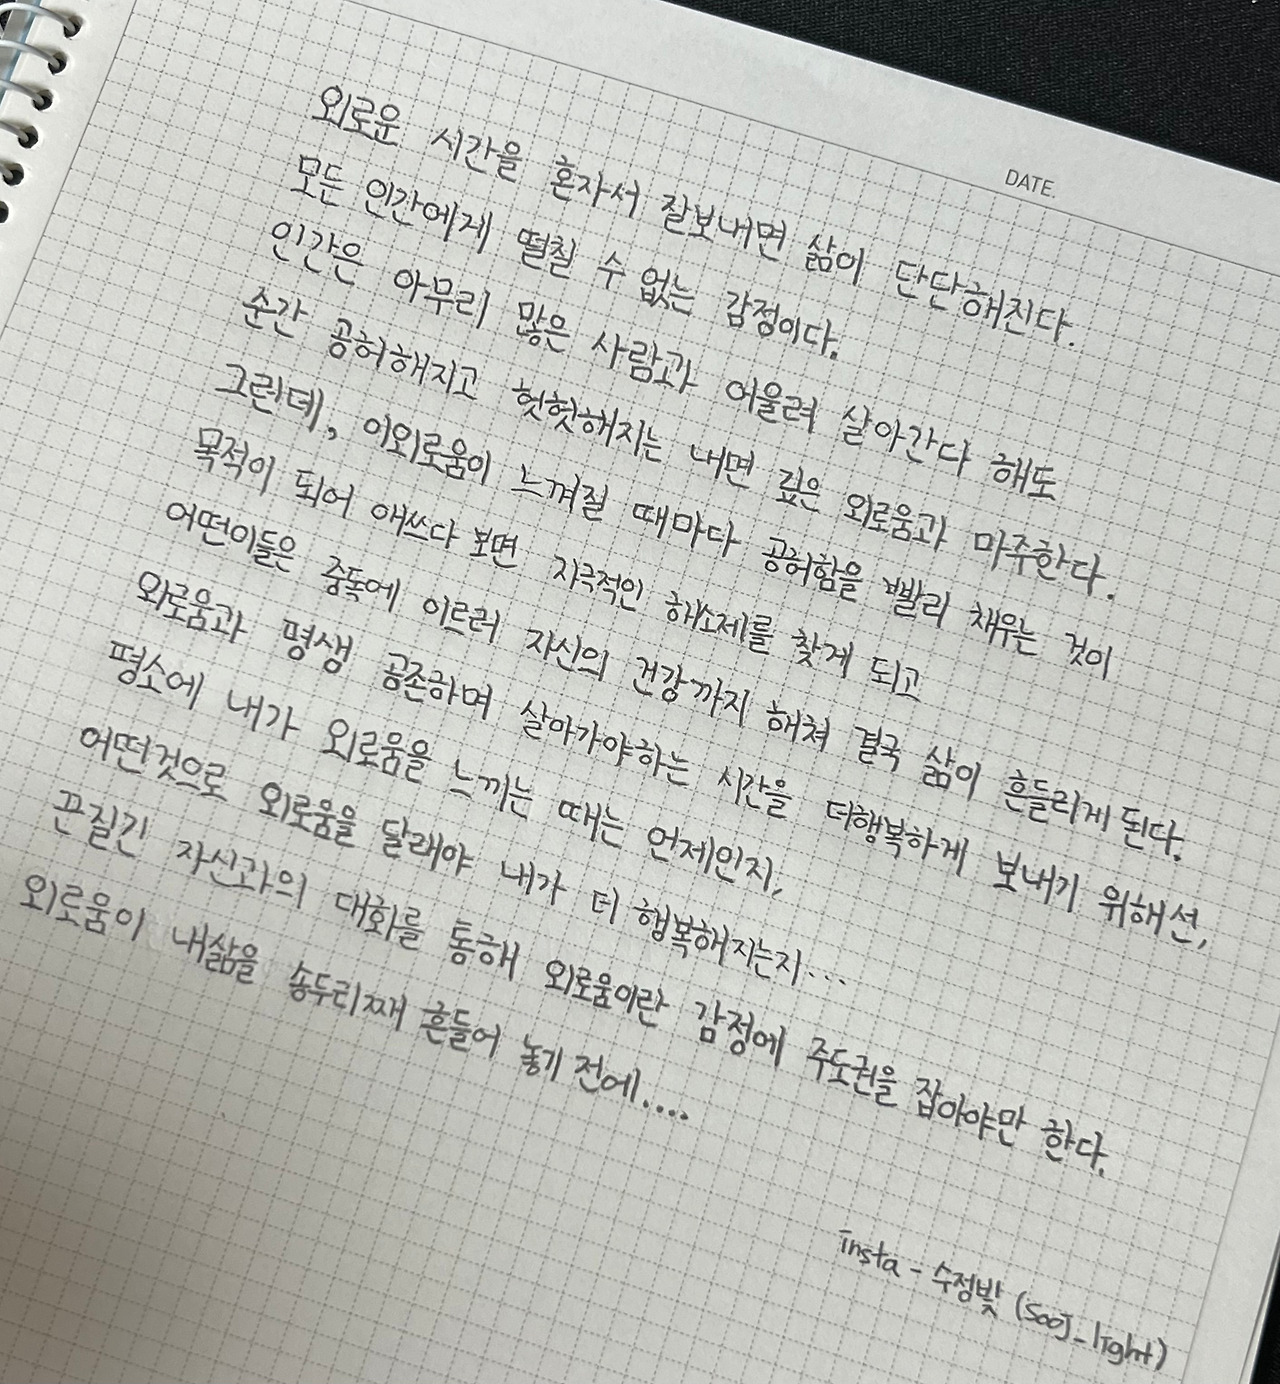 DATE.
외로운 시간을 혼자서 잘보내면 삶이 단단해진다.
모든 인간에게 떨칠 수 없는 감정이다.
인간은 아무리 많은 사람과 어울려 살아간다 해도
순간 공허해지고 헛헛해지는 내면 깊은 외로움과 마주한다.
그런데, 이외로움이 느껴질 때마다 공허함을 빨리 채우는 것이
목적이 되어 애쓰다 보면 자극적인 해소제를 찾게 되고
어떤이들은 중독에 이르러 자신의 건강까지 해쳐 결국 삶이 흔들리게 된다.
외로움과 평생 공존하며 살아가야하는 시간을 더행복하게 보내기 위해선,
평소에 내가 외로움을 느끼는 때는 언제인지,
어떤것으로 외로움을 달래야 내가 더 행복해지는지...
끈질긴 자신과의 대화를 통해 외로움이란 감정에 주도권을 잡아야만 한다.
외로움이 내삶을 송두리째 흔들어 놓기 전에....
insta - 수정빛 (sooj_light)